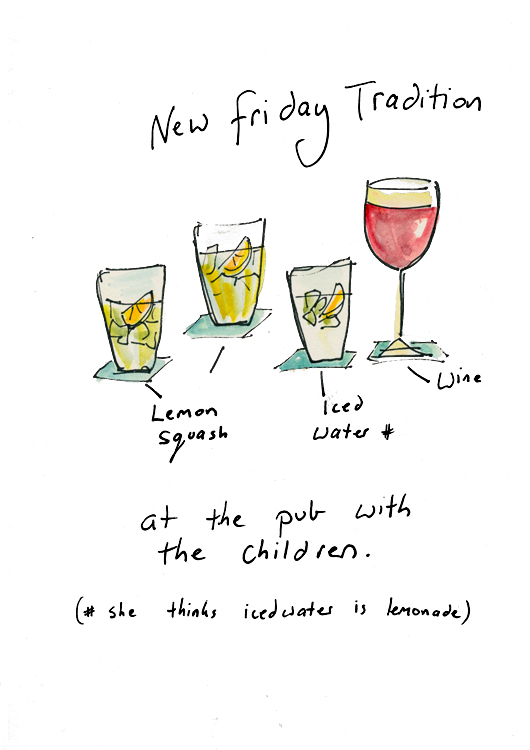 New Friday Tradition
Lemon
Squash
Iced
Water #
Wine
at the pub with
the children.
(# she thinks iced water is lemonade)